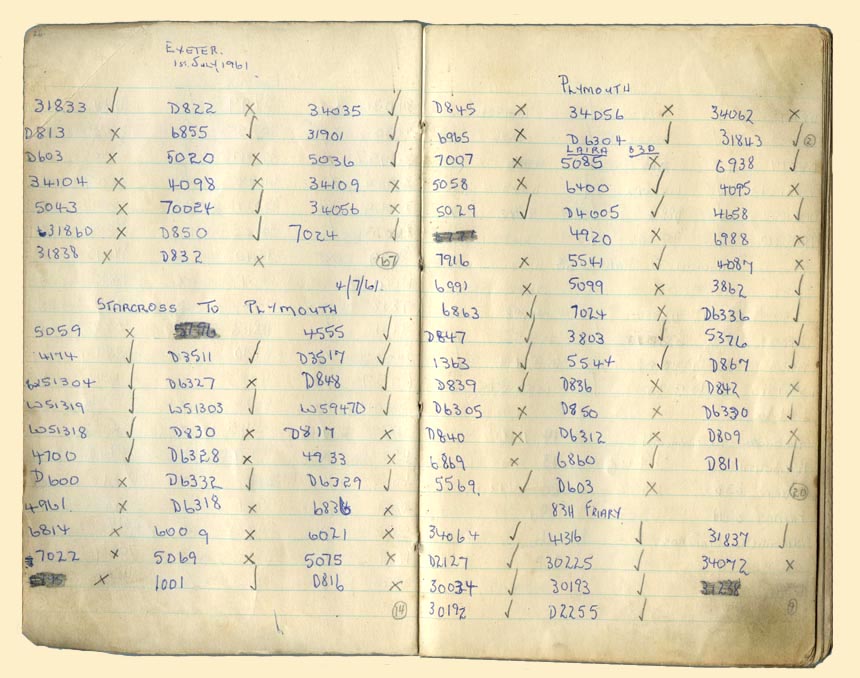 EXETER.
1st. July, 1961
31833 ✓ D822 × 34035 ✓
D813 × 6855 ✓ 31901 ✓
D603 × 5020 × 5036 ✓
34104 × 4098 × 34109 ×
5043 × 70024 ✓ 34056 ×
31860 × D850 ✓ 7024 ✓
31838 × D832 ×
4/7/61.
STARCROSS TO PLYMOUTH
5059 × 4555 ✓
4174 ✓ D3511 ✓ D3517 ✓
W51304 ✓ D6327 × D848 ✓
W51319 ✓ W51303 ✓ W59470 ✓
W51318 ✓ D830 × D817 ×
4700 ✓ D6328 × 4933 ×
D600 × D6332 ✓ D6329 ✓
4961. × D6318 × 6836 ×
6814 × 6009 × 6021 ×
7022 × 5069 × 5075 ×
× 1001 ✓ D816 ×
14
PLYMOUTH
D845 × 34056 × 34062 ×
6965 × D6304 ✓ 31843 ✓ 2
LAIRA 83D
7007 × 5085 × 6938 ✓
5058 × 6400 ✓ 4095 ×
5029 ✓ D4005 ✓ 4658 ✓
4920 × 6988 ×
7916 × 5541 ✓ 4087 ×
6991 × 5099 × 3862 ✓
6863 ✓ 7024 × D6336 ✓
D847 ✓ 3803 ✓ 5376 ✓
1363 ✓ 5544 ✓ D867 ✓
D839 ✓ D836 × D842 ×
D6305 × D850 × D6330 ✓
D840 × D6312 × D809 ×
6869 × 6860 ✓ D811 ✓
5569. ✓ D603 × 20
83H FRIARY
34064 ✓ 41316 ✓ 31837 ✓
D2127 ✓ 30225 ✓ 34072 ×
30034 ✓ 30193 ✓
30192 ✓ D2255 ✓ 9